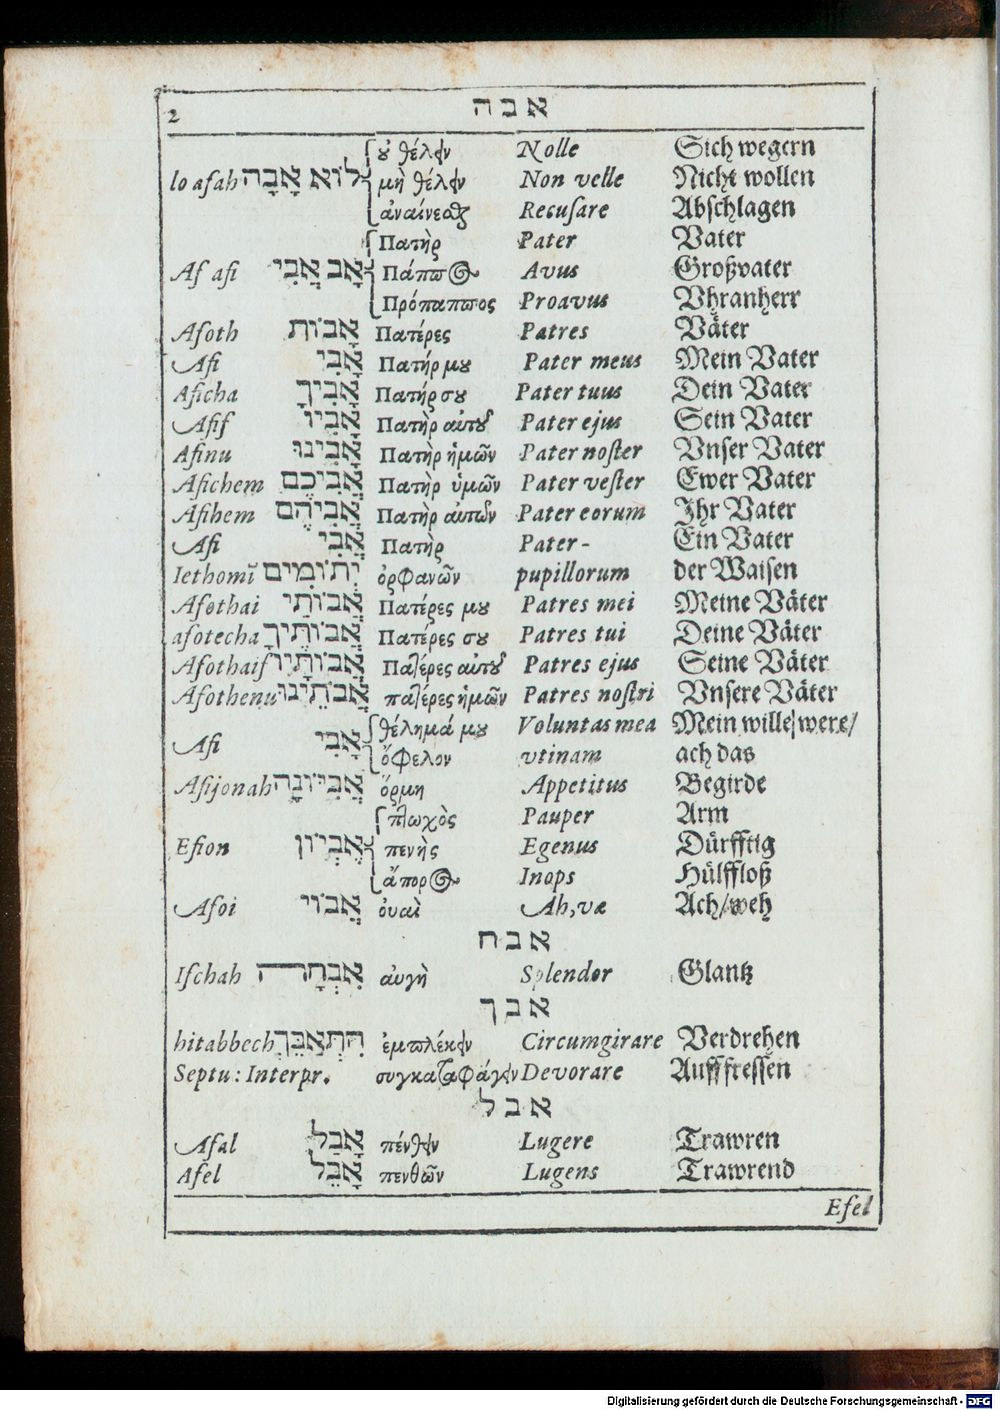 2 אבה
ȣ̓ θέλειν Nolle Sich wegern
lo afah לוֹא אָבָה μὴ θέλειν Non velle Nicht wollen
ἀναίνεσθαι Recuſare Abſchlagen
Πατὴρ Pater Vater
Af afi אָב אֲבִי Πάππος Avus Großvater
Πρόπαππος Proavus Vhranherr
Afoth אָבוֹת Πατέρες Patres Väter
Afi אָבִי Πατήρ μȣ Pater meus Mein Vater
Aficha אָבִיךָ Πατήρ σȣ Pater tuus Dein Vater
Afif אָבִיו Πατὴρ αὐτȣ͂ Pater ejus Sein Vater
Afinu אָבִינוּ Πατὴρ ἡμῶν Pater noſter Vnser Vater
Afichem אֲבִיכֶם Πατὴρ ὑμῶν Pater veſter Ewer Vater
Afihem אֲבִיהֶם Πατὴρ αὐτῶν Pater eorum Ihr Vater
Afi אֲבִי Πατὴρ Pater- Ein Vater
Iethomĩ יְתוֹמִים ὀρφανῶν pupillorum der Waisen
Afothai אֲבוֹתַי Πατέρες μȣ Patres mei Meine Väter
afotecha אֲבוֹתֶיךָ Πατέρες σȣ Patres tui Deine Väter
Afothaif אֲבוֹתָיו Πατέρες αὐτȣ͂ Patres ejus Seine Väter
Afothenu אֲבֹתֵינוּ πατέρες ἡμῶν Patres noſtri Vnsere Väter
θέλημά μȣ Voluntas mea Mein wille/were/
Afi אָבִי ὄφελον vtinam ach das
Afijonah אֲבִיּוֹנָה ὅρμη Appetitus Begirde
πτωχὸς Pauper Arm
Efion אֶבְיוֹן πενὴς Egenus Dürfftig
ἄπορος Inops Hülffloß
Afoi אֲבוֹי ȣ̓αὶ Ah, væ Ach/weh
אבח
Ifchah אִבְחָה αὐγὴ Splendor Glantz
אבך
hitabbech הִתְאַבֵּךְ ἐμπλέκειν Circumgirare Verdrehen
Septu: Interpr. συγκαταφάγειν Devorare Aufffreſſen
אבל
Afal אָבַל πένθειν Lugere Trawren
Afel אָבֵל πενθῶν Lugens Trawrend
Efel
Digitalisierung gefördert durch die Deutsche Forschungsgemeinschaft - DFG